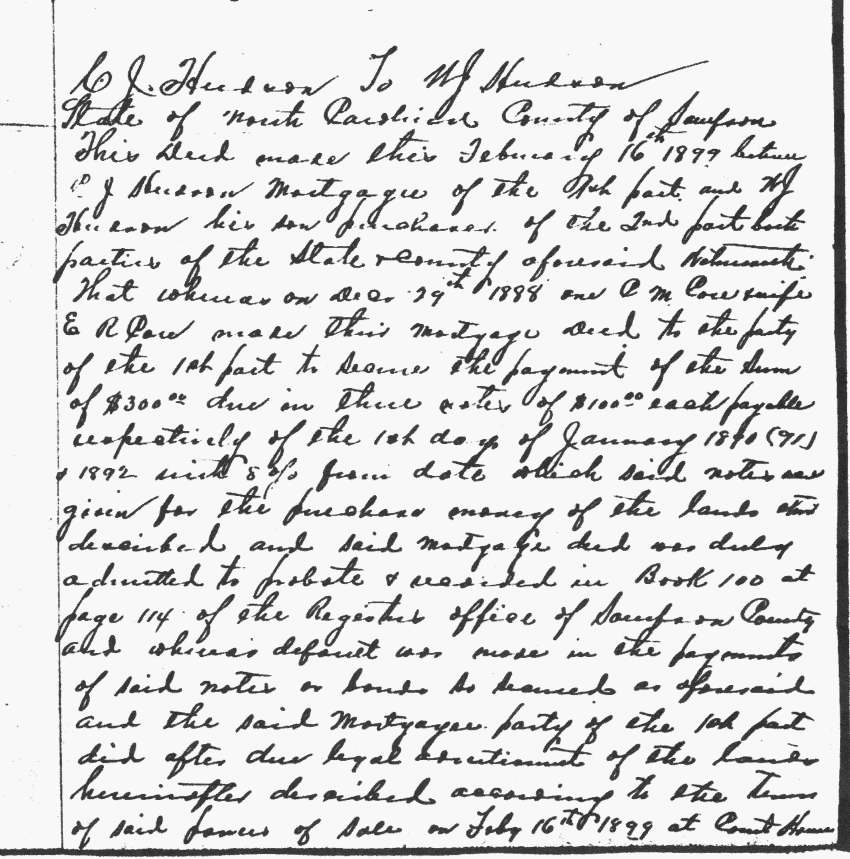 C J. Hudson To W J Hudson
State of North Carolina County of Sampson
This Deed made this February 16th 1899 between
C J Hudson Mortgagee of the 1st part and W J
Hudson his son purchaser of the 2nd part both
parties of the State & County aforesaid Witnesseth
That whereas on Decr 29th 1888 one C M Core & wife
E R Core made this Mortgage Deed to the party
of the 1st part to secure the payment of the sum
of $300.00 due in three notes of $100.00 each payable
respectively of the 1st day of January 1890 (91)
& 1892 with 8 % from date which said notes was
given for the purchase money of the lands
described and said mortgage deed was duly
admitted to probate & recorded in Book 100 at
page 114 of the Registers office of Sampson County
and whereas default was made in the payments
of said notes or bonds so secured as aforesaid
and the said Mortgagee party of the 1st part
did after due legal advertisement of the lands
hereinafter described according to the terms
of said power of sale on Feby 16th 1899 at Court House